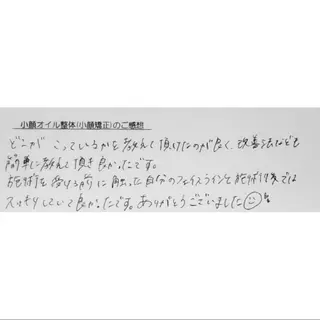 小顔オイル整体(小顔矯正)のご感想
どこが こっているかを教えて頂けたのが良く、改善法なども
簡単に教えて頂き良かったです。
施術を受ける前に触った自分のフェイスラインと施術後では
スッキリしていて良かったです。ありがとうございました